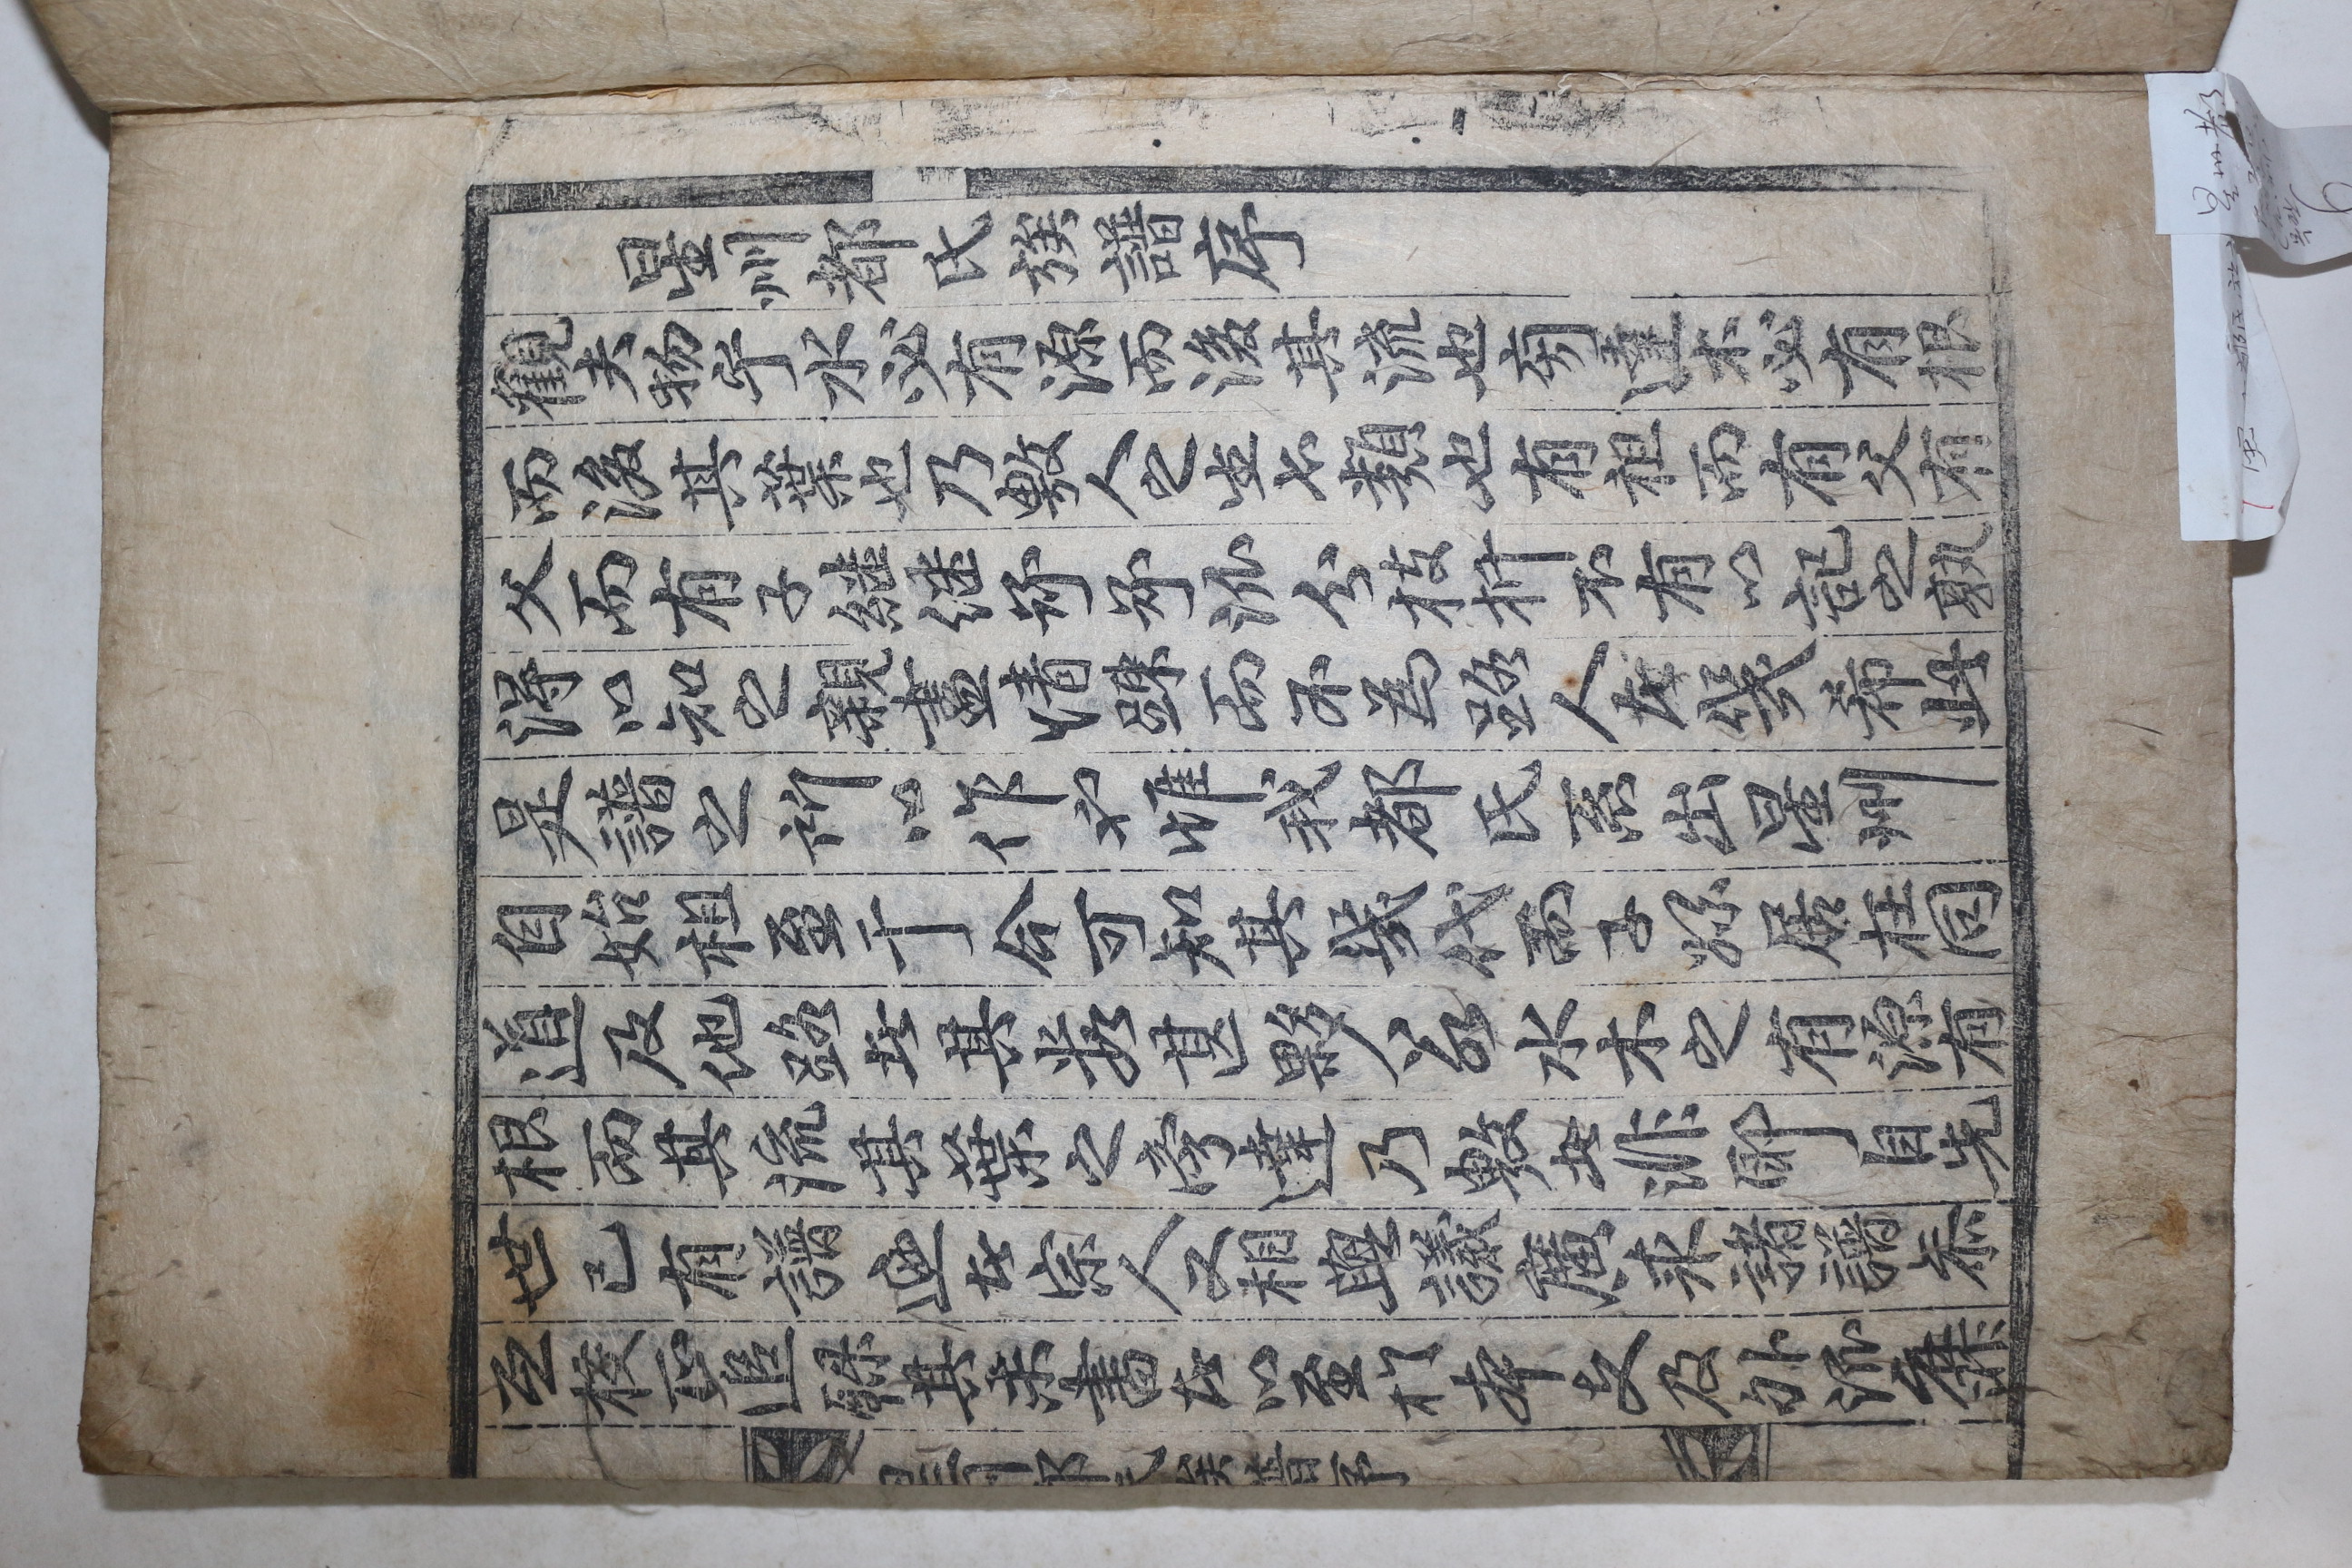 星州都氏族譜序
觀夫物乎水必有源而後其流也旁達木必有根
而後其葉也乃敷人之生亦類也有祖而有父有
父而有子継継承承派分枝析不有以記之孰
得以知之親盡情踈而不為路人者幾希此
是譜之所以作也惟我都氏系出星州
自始祖至于今可知其幾代而子孫居在同
道及他路者其数甚夥若水木之有源有
根而其流其葉之旁達乃敷者非耶自先
世已有譜
宗人又相與議廣求諸譜叅
互校正追録其未書者以至於本支及外派